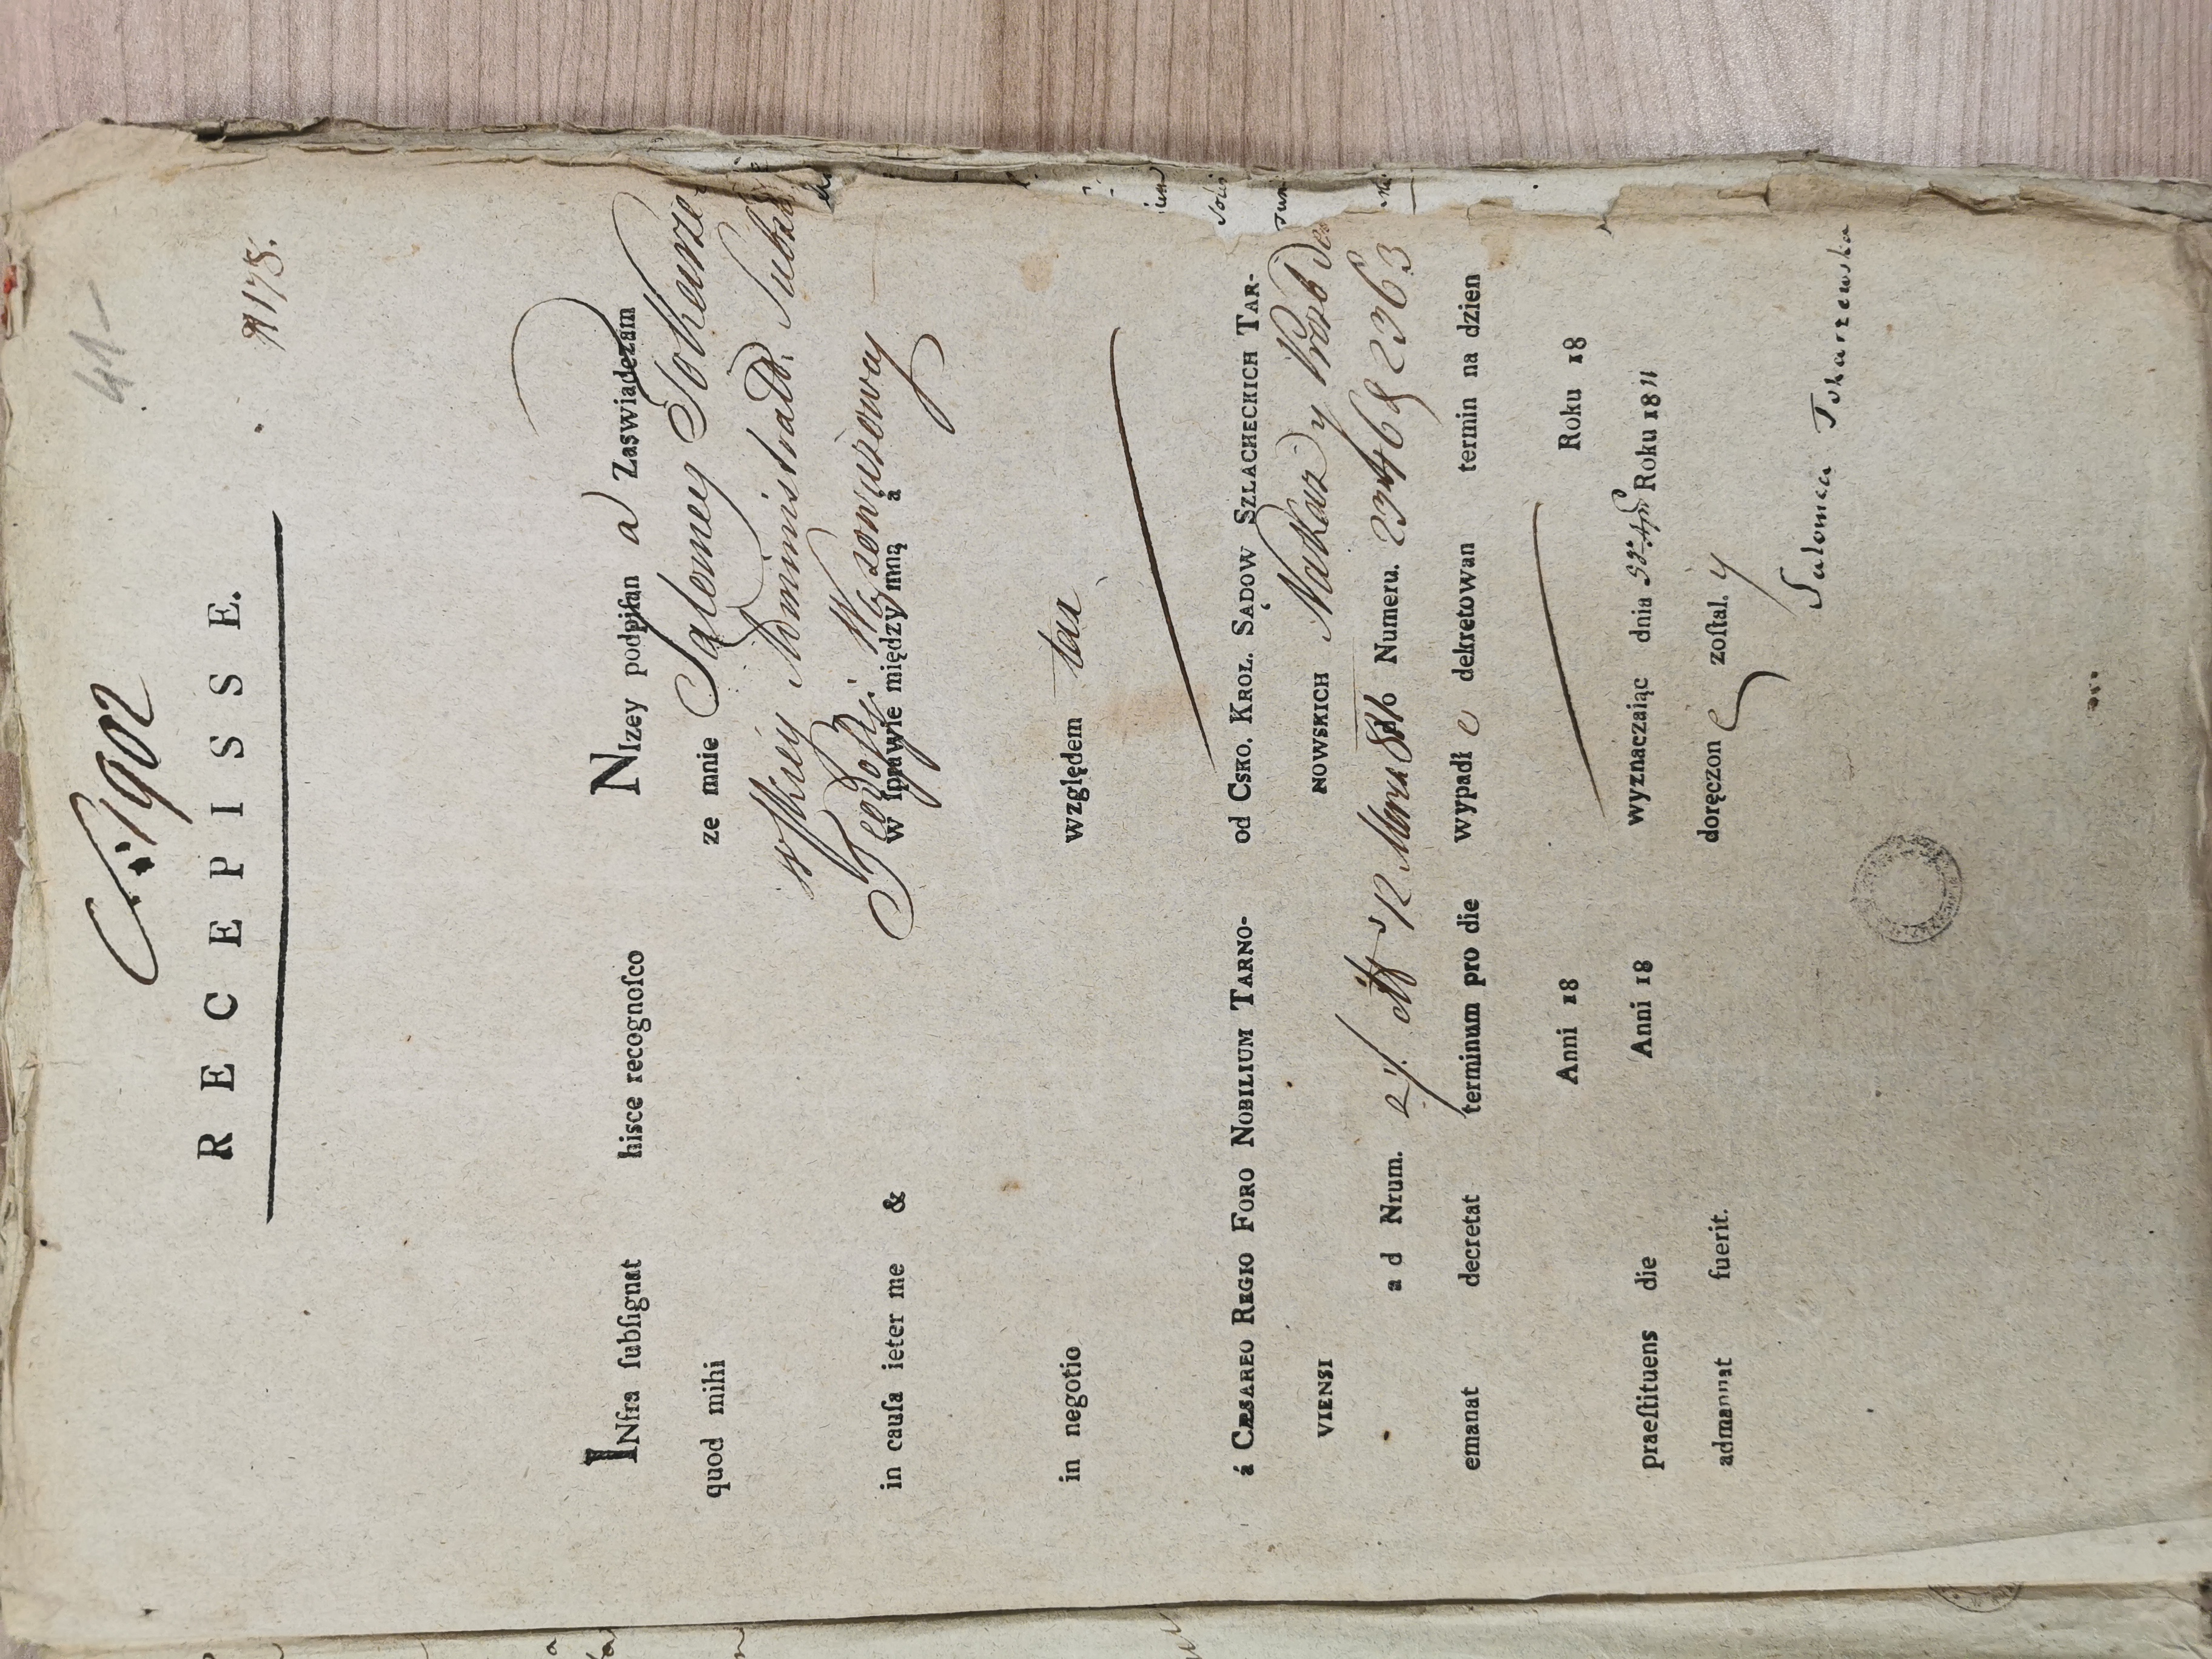 41
C: 1902
R 175.
RECEPISSE.
INfra ſubſignat hisce recognoſco
quod mihi
in cauſa ieter me &
in negotio
á CÆSAREO REGIO FORO NOBILIUM TARNO-
VIENSI
ad Nrum.
emanat decretat terminum pro die
Anni 18
praeſtituens die Anni 18
admannat fuerit.
NIzey podpiſan a Zaswiadczam
ze mnie Salomey Tokarze
wſkiey Administratr.
w ſprawie między mną a
Teofili
względem
od CSKO. KROL. SĄDOW SZLACHECKICH TAR-
NOWSKICH Nakaz y
Numeru. 2363
wypadł e dekretowan termin na dzien
Roku 18
wyznaczaiąc dnia Roku 1811
doręczon zoſtal. y
Salomea Tokarzewska